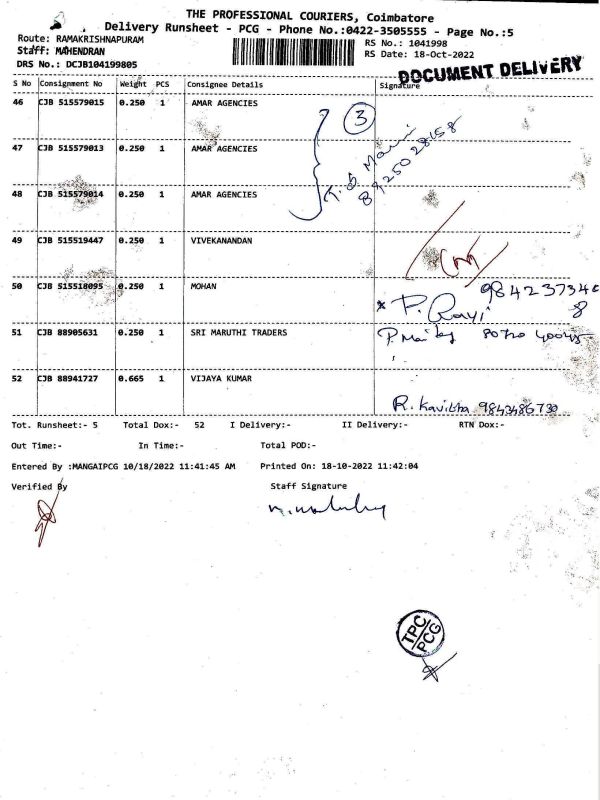 THE PROFESSIONAL COURIERS, Coimbatore
Delivery Runsheet - PCG - Phone No.:0422-3505555 - Page No.:5
Route: RAMAKRISHNAPURAM
RS No.: 1041998
Staff: MAHENDRAN
RS Date: 18-Oct-2022
DRS No.: DCJB104199805
DOCUMENT DELIVERY
S No Consignment No Weight PCS Consignee Details Signature
46 CJB 515579015 0.250 1 AMAR AGENCIES
3
47 CJB 515579013 0.250 1 AMAR AGENCIES
8925028158
48 CJB 515579014 0.250 1 AMAR AGENCIES
49 CJB 515519447 0.250 1 VIVEKANANDAN
50 CJB 515518095 0.250 1 MOHAN
51 CJB 88905631 0.250 1 SRI MARUTHI TRADERS
52 CJB 88941727 0.665 1 VIJAYA KUMAR
R. Kavitha 9843486730
Tot. Runsheet:- 5 Total Dox:- 52 I Delivery:- II Delivery:- RTN Dox:-
Out Time:- In Time:- Total POD:-
Entered By :MANGAIPCG 10/18/2022 11:41:45 AM Printed On: 18-10-2022 11:42:04
Verified By Staff Signature
TPC
PCG